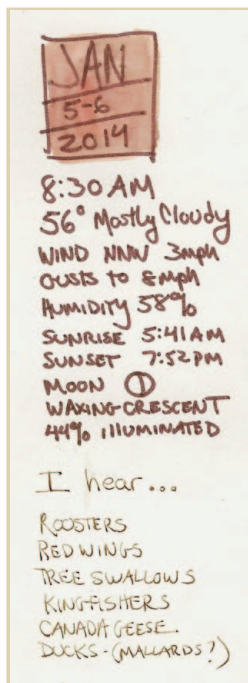 JAN
5-6
2014
8:30 AM
56° Mostly Cloudy
WIND NNW 3mph
GUSTS to 8mph
HUMIDITY 58%
SUNRISE 5:41AM
SUNSET 7:52PM
MOON
WAXING CRESCENT
44% ILLUMINATED
I hear...
ROOSTERS
REDWINGS
TREE SWALLOWS
KINGFISHERS
CANADA GEESE.
DUCKS-(MALLARDS?)